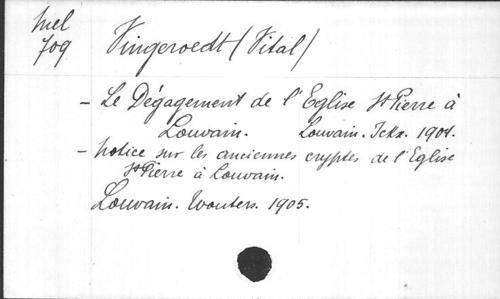 Mel
709
Vingeroedt (Vital)
- Le Dégagement de l'Eglise St Pierre à
Louvain. Louvain. Ickx. 1901.
- Notice sur les anciennes cryptes de l'Eglise
St Pierre à Louvain.
Louvain. Wouters. 1905.